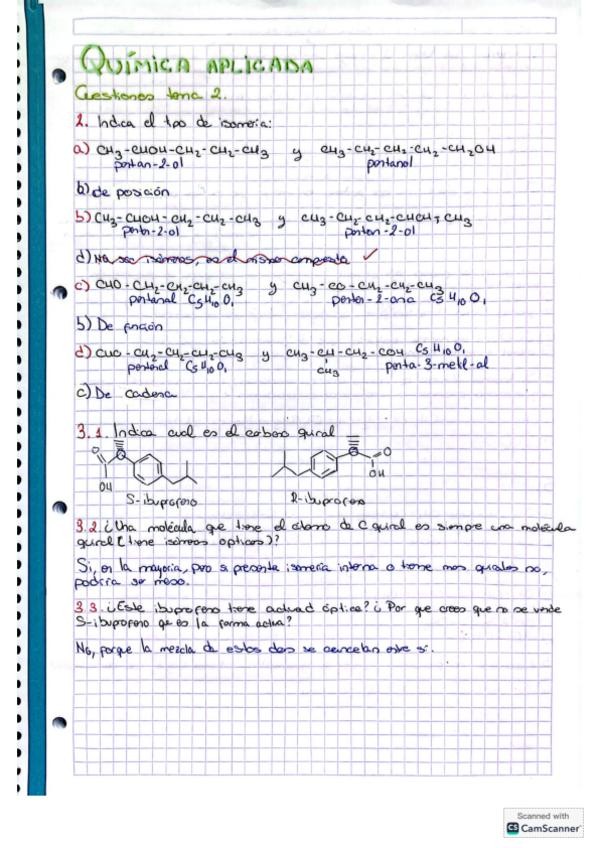 QUÍMICA APLICADA
Cuestiones tema 2.
1. Indica el tipo de isomería:
a) CH3-CHOH-CH2-CH2-CH3 y CH3-CH2-CH2-CH2-CH2OH
pentan-2-ol pentanol
b) de posición
b) CH3-CHOH-CH2-CH2-CH3 y CH3-CH2-CH2-CHOH-CH3
pentan-2-ol pentan-2-ol
d) No son isómeros, es el mismo compuesto ✓
c) CHO-CH2-CH2-CH2-CH3 y CH3-CO-CH2-CH2-CH3
pentanal C5H10O1 pentan-2-ona C5H10O1
b) De función
d) CHO-CH2-CH2-CH2-CH3 y CH3-CH-CH2-COH C5H10O1
pentanal C5H10O1 CH3 penta-3-metil-al
c) De cadena
3.1. Indica cual es el carbono quiral
O O
OH OH
S-ibuprofeno R-ibuprofeno
3.2. ¿Una molécula que tiene el átomo de C quiral es siempre una molécula
quiral (tiene isómeros opticos)?
Si, en la mayoria, pero si presenta isomería interna o tiene mas quirales no,
podría ser meso.
3.3. ¿Este ibuprofeno tiene óptica? ¿Por que crees que no se vende
S-ibuprofeno que es la forma activa?
No, porque la mezcla de estos dos se cancelan entre si.
Scanned with
CS CamScanner